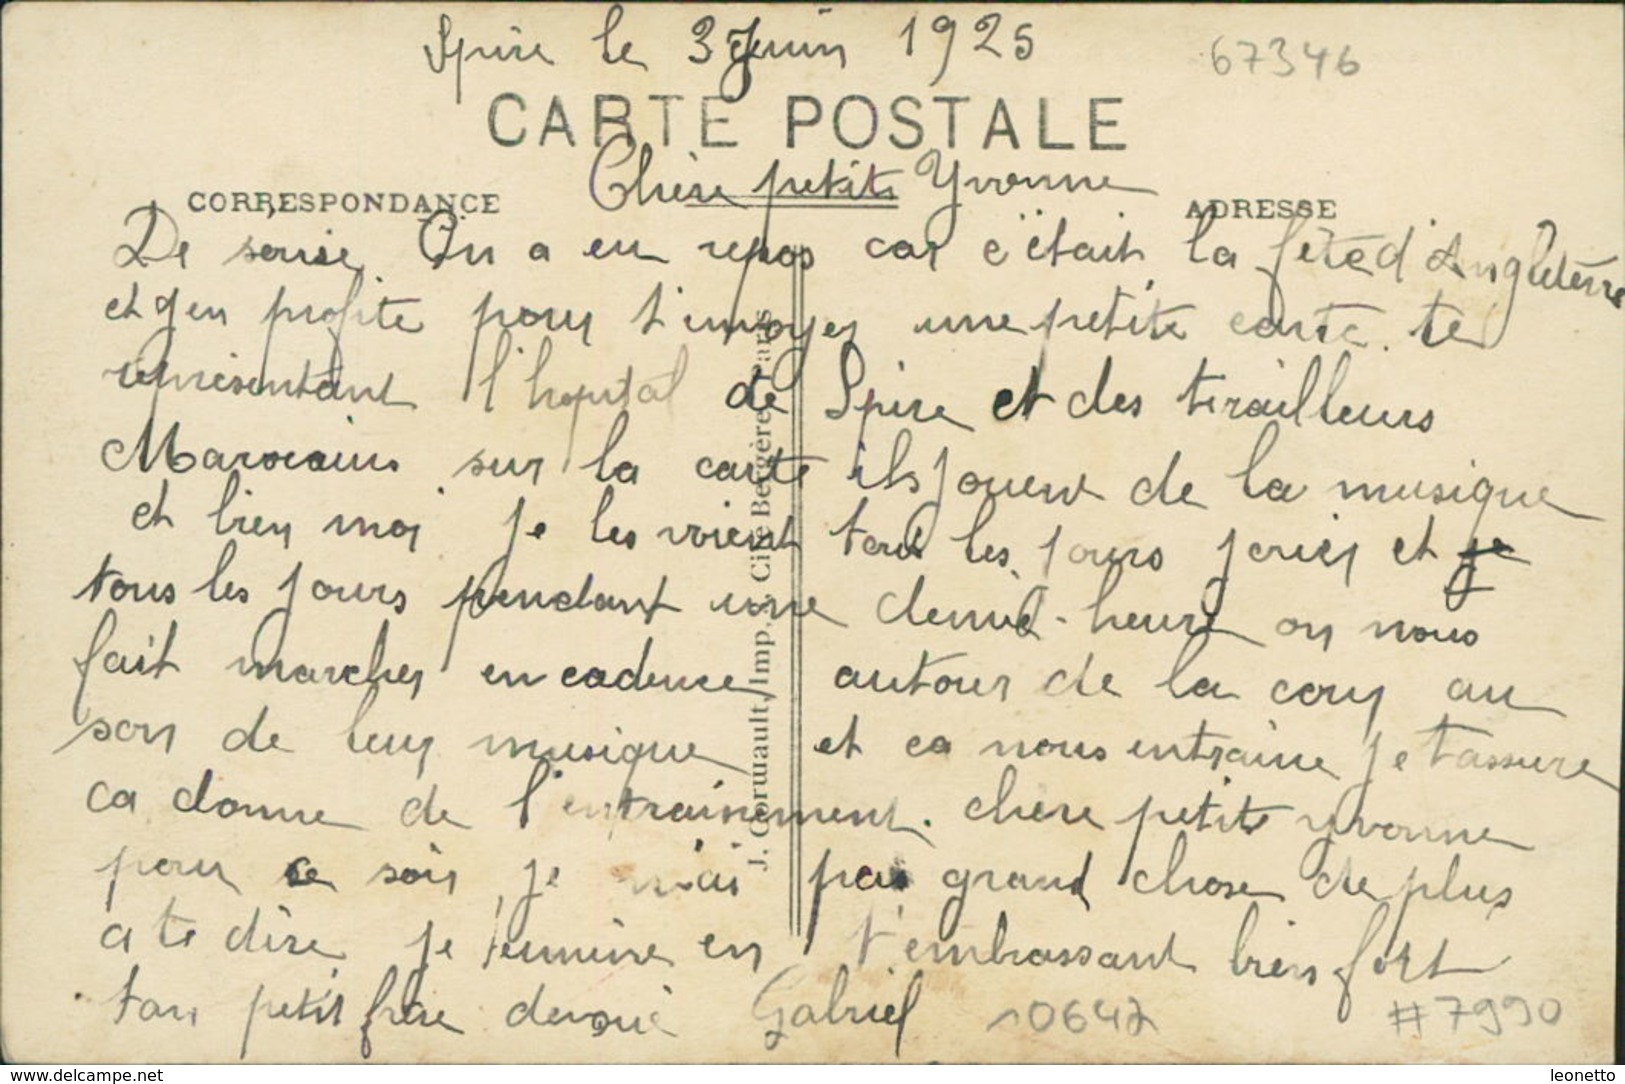 Spire le 3 Juin 1925
67346
CARTE POSTALE
Chère petite Yvonne
CORRESPONDANCE
ADRESSE
De On a eu repos car c'était la fête d'Angleterre
et j'en profite pour t'envoyer une petite carte te
représentant l'hopital de Spire et des tirailleurs
Marocains sur la carte ils jouent de la musique
et bien moi je les voient tout les jours jouer et je
tous les jours pendant une demie-heure on nous
fait marcher en cadence autour de la cour au
son de leur musique et ca nous entraine je t'assure
ca donne de l'entrainement. chère petite Yvonne
pour ce soir je n'ai pas grand chose de plus
a te dire je termine en t'embrassant bien fort
ton petit frère devoué Gabriel
10647
#7990
J. Cormault, Imp., Cité Bergère, Paris
www.delcampe.net
leonetto